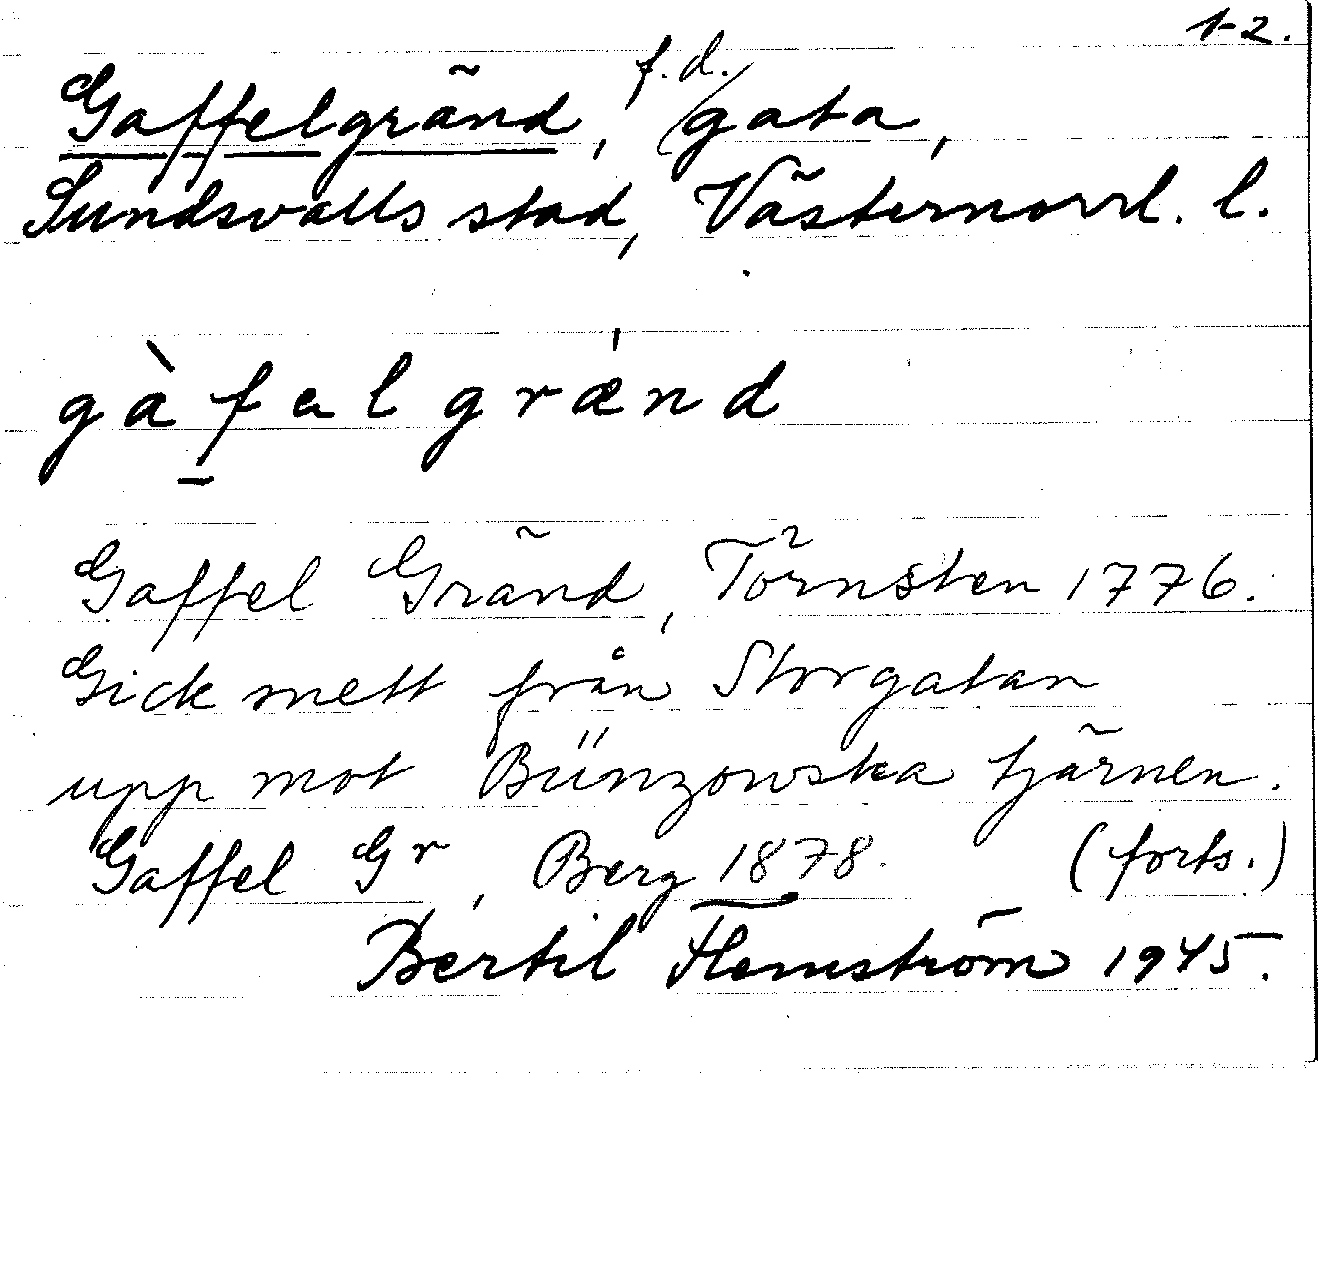 1-2.
Gaffelgränd, f.d. gata,
Sundsvalls stad, Västernorrl. l.
gàfəlgrǽnd
Gaffel Gränd, Törnsten 1776.
Gick mett från Storgatan
upp mot Bünzowska tjärnen.
Gaffel Gr, Berg 1878. (forts.)
Bertil Flemström 1945.